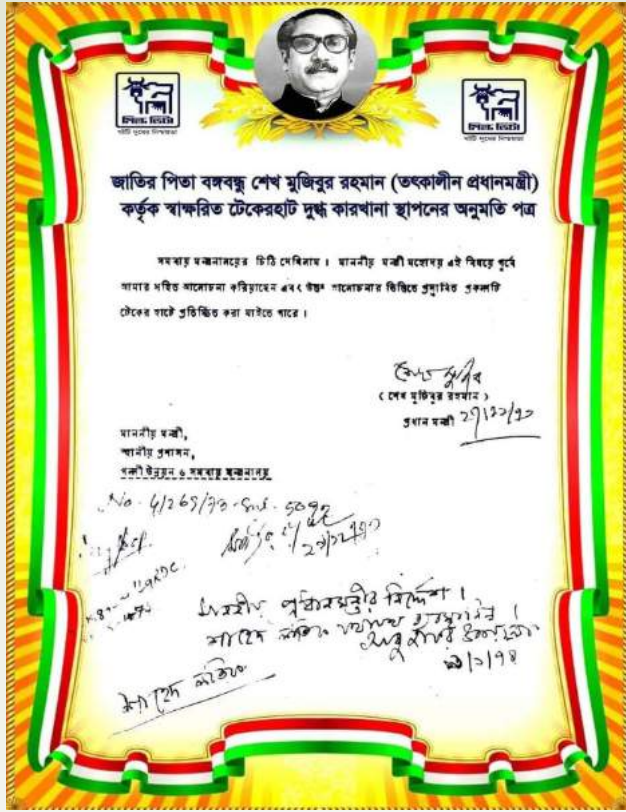 মিল্ক ভিটা
খাঁটি দুধের নিশ্চয়তা
মিল্ক ভিটা
খাঁটি দুধের নিশ্চয়তা
জাতির পিতা বঙ্গবন্ধু শেখ মুজিবুর রহমান (তৎকালীন প্রধানমন্ত্রী)
কর্তৃক স্বাক্ষরিত টেকেরহাট দুগ্ধ কারখানা স্থাপনের অনুমতি পত্র
সমবায় মন্ত্রনালয়ের চিঠি দেখিলাম। মাননীয় মন্ত্রী মহোদয় এই বিষয়ে পূর্বে
আমার সহিত আলোচনা করিয়াছেন এবং উক্ত আলোচনার ভিত্তিতে প্রস্তাবিত প্রকল্পটি
টেকের হাটে প্রতিষ্ঠিত করা যাইতে পারে।
শেখ মুজিব
( শেখ মুজিবুর রহমান )
প্রধান মন্ত্রী ২৭/১২/৭৩
মাননীয় মন্ত্রী,
স্থানীয় প্রশাসন,
পল্লী উন্নয়ন ও সমবায় মন্ত্রনালয়
No. 4/269/73
মাননীয় প্রধানমন্ত্রীর নির্দেশ।